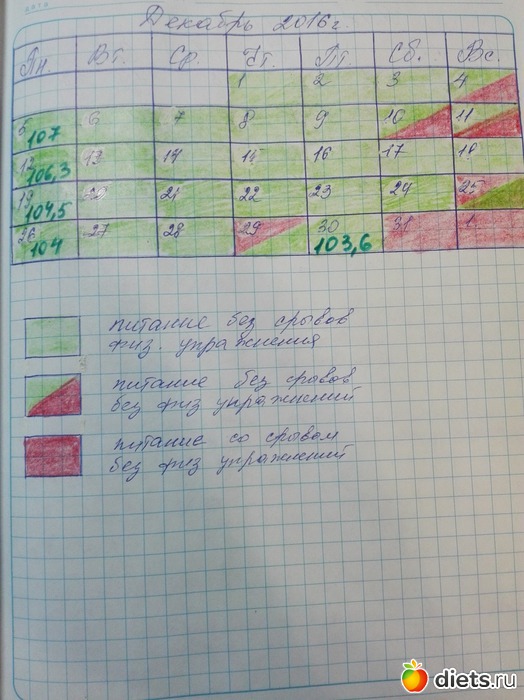 ДАТА
Декабрь 2016г.
Пн. Вт. Ср. Чт. Пт. Сб. Вс.
1 2 3 4
5 107 6 7 8 9 10 11
12 106,3 13 14 15 16 17 18
19 104,5 20 21 22 23 24 25
26 104 27 28 29 30 103,6 31 1
питание без срывов
физ. упражнения
питание без срывов
без физ упражнений
питание со срывом
без физ упражнений
diets.ru